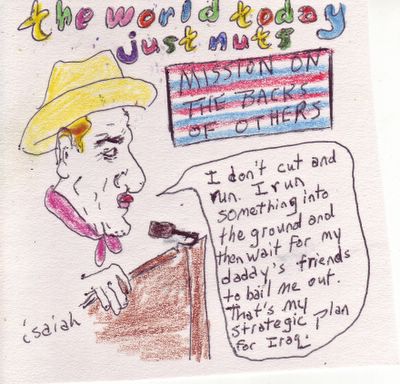 the world today
just nuts
MISSION ON
THE BACKS
OF OTHERS
I don't cut and
run. I run
something into
the ground and
then wait for my
daddy's friends
to bail me out.
That's my
strategic plan
for Iraq.
isaiah